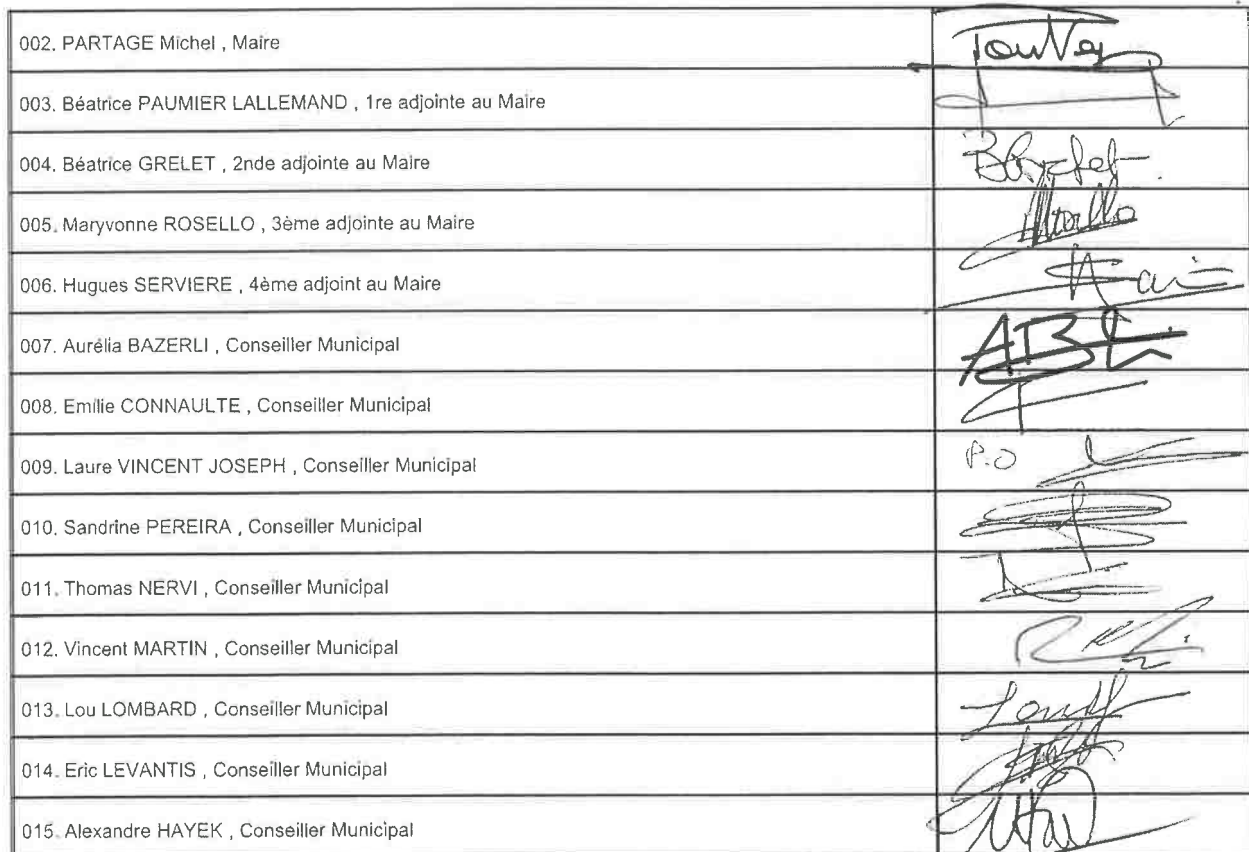 002. PARTAGE Michel , Maire
003. Béatrice PAUMIER LALLEMAND , 1re adjointe au Maire
004. Béatrice GRELET , 2nde adjointe au Maire
005. Maryvonne ROSELLO , 3ème adjointe au Maire
006. Hugues SERVIERE , 4ème adjoint au Maire
007. Aurélia BAZERLI , Conseiller Municipal
008. Emilie CONNAULTE , Conseiller Municipal
009. Laure VINCENT JOSEPH , Conseiller Municipal P.O
010. Sandrine PEREIRA , Conseiller Municipal
011. Thomas NERVI , Conseiller Municipal
012. Vincent MARTIN , Conseiller Municipal
013. Lou LOMBARD , Conseiller Municipal
014. Eric LEVANTIS , Conseiller Municipal
015. Alexandre HAYEK , Conseiller Municipal